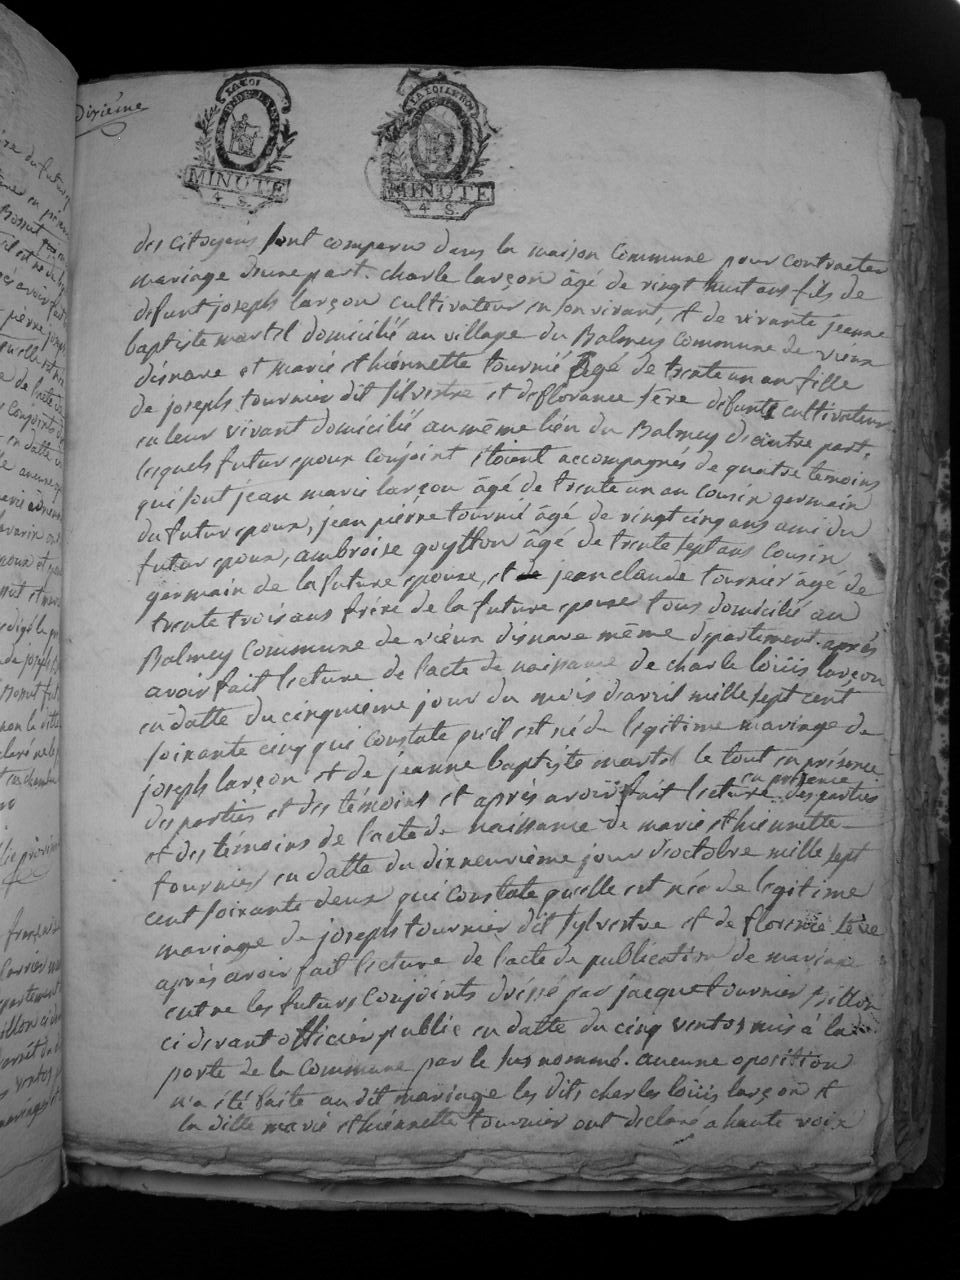 Dixiéme
LA LOI
MINUTE
4 S.
LA LOI LE ROI
MINUTE
4 S.
des Citoyens sont comparu dans la maison Commune pour Contracter
mariage d'une part. charle larçon âgé de vingt huit ans fils de
defunt joseph larçon Cultivateur en son vivant, et de vivante jeanne
baptiste martel domicilié au village du Balmey Commune de vieux
disnave et marie ethiennette tournié âgé de trente un an fille
de joseph tournier dit silvestre et deflorance fere defunts cultivateur
en leur vivant domicilié au même lieu du Balmey dautre part,
lesquels futur epoux Conjoint étoient accompagnés de quatre temoins
qui sont jean marie larçon âgé de trente un an Cousin germain
du futur epoux, jean piérre tournié âgé de vingt cinq ans ami du
futur epoux, ambroise goytton âgé de trente sept ans Cousin
germain de la future epouse, et de jean claude tournier âgé de
trente trois ans frére de la future epouse tous domicilié au
Balmey Commune de vieux disnave même département. après
avoir fait lecture de lacte de naissance de charle loüis larçon
en datte du cinquiéme jour du mois d'avril mille sept cent
soixante cinq qui Constate quil est né de legitime mariage de
joseph larçon et de jeanne baptiste martel le tout en présence
des parties et des témoins et après avoir fait lecture en présence des parties
et des témoins de l'acte de naissance de marie ethiennette
tournier en datte du dixneuvième jour d'octobre mille sept
cent soixante deux qui Constate quelle est née de legitime
mariage de joseph tournier dit sylvestre et de florence fere
après avoir fait lecture de l'acte de publication de mariage
entre les futurs Conjoints dréssé par jacque tournier Billon
ci devant officier public en datte du cinq ventos mis à la
porte de la Commune par le sus nommé. aucune oposition
n'a été faite au dit mariage les dits charles loüis larçon et
la ditte marie ethiennette tournier ont declaré a haute voix